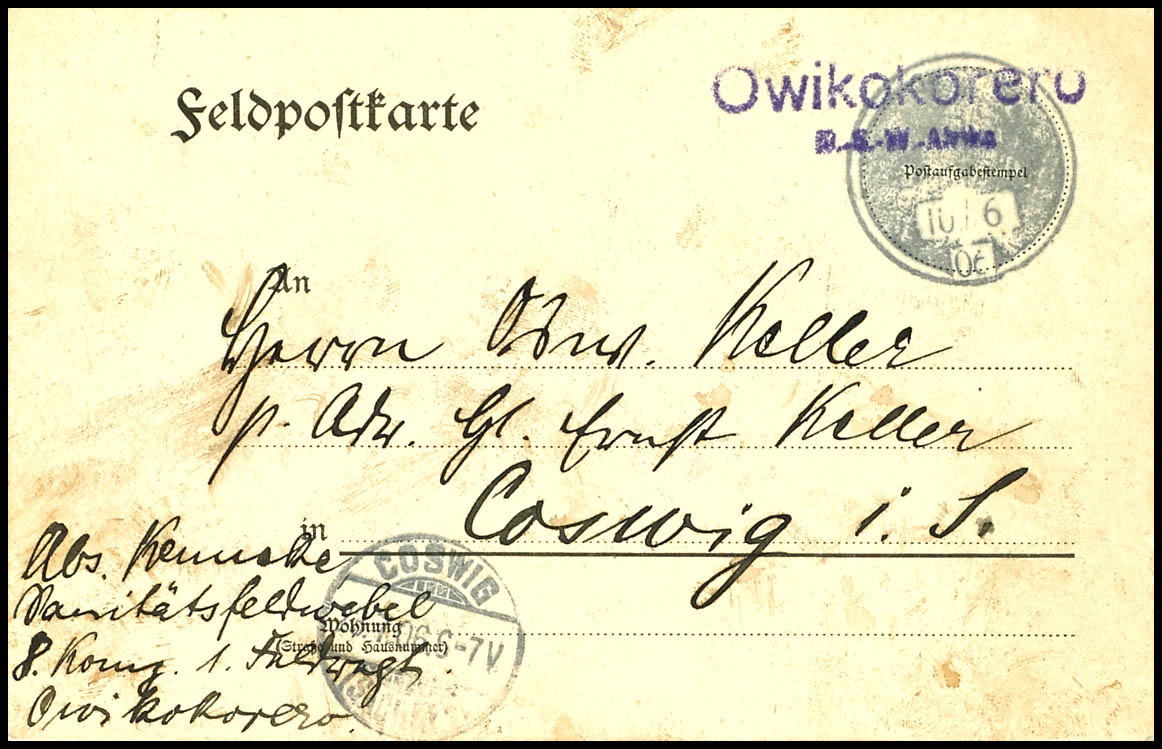 Feldpostkarte
Owikokorero
D.-S.-W.-Afrika
Postaufgabestempel
10/6
06
An
Herrn Osw. Keller
p. Adr. Gl. Ernst Keller
in Coswig i. S.
COSWIG
06 6-7V
Wohnung
(Straße und Hausnummer)
Abs. Kennecke
Sanitätsfeldwebel
8. Komp. 1. Feldregt.
Owikokorero.